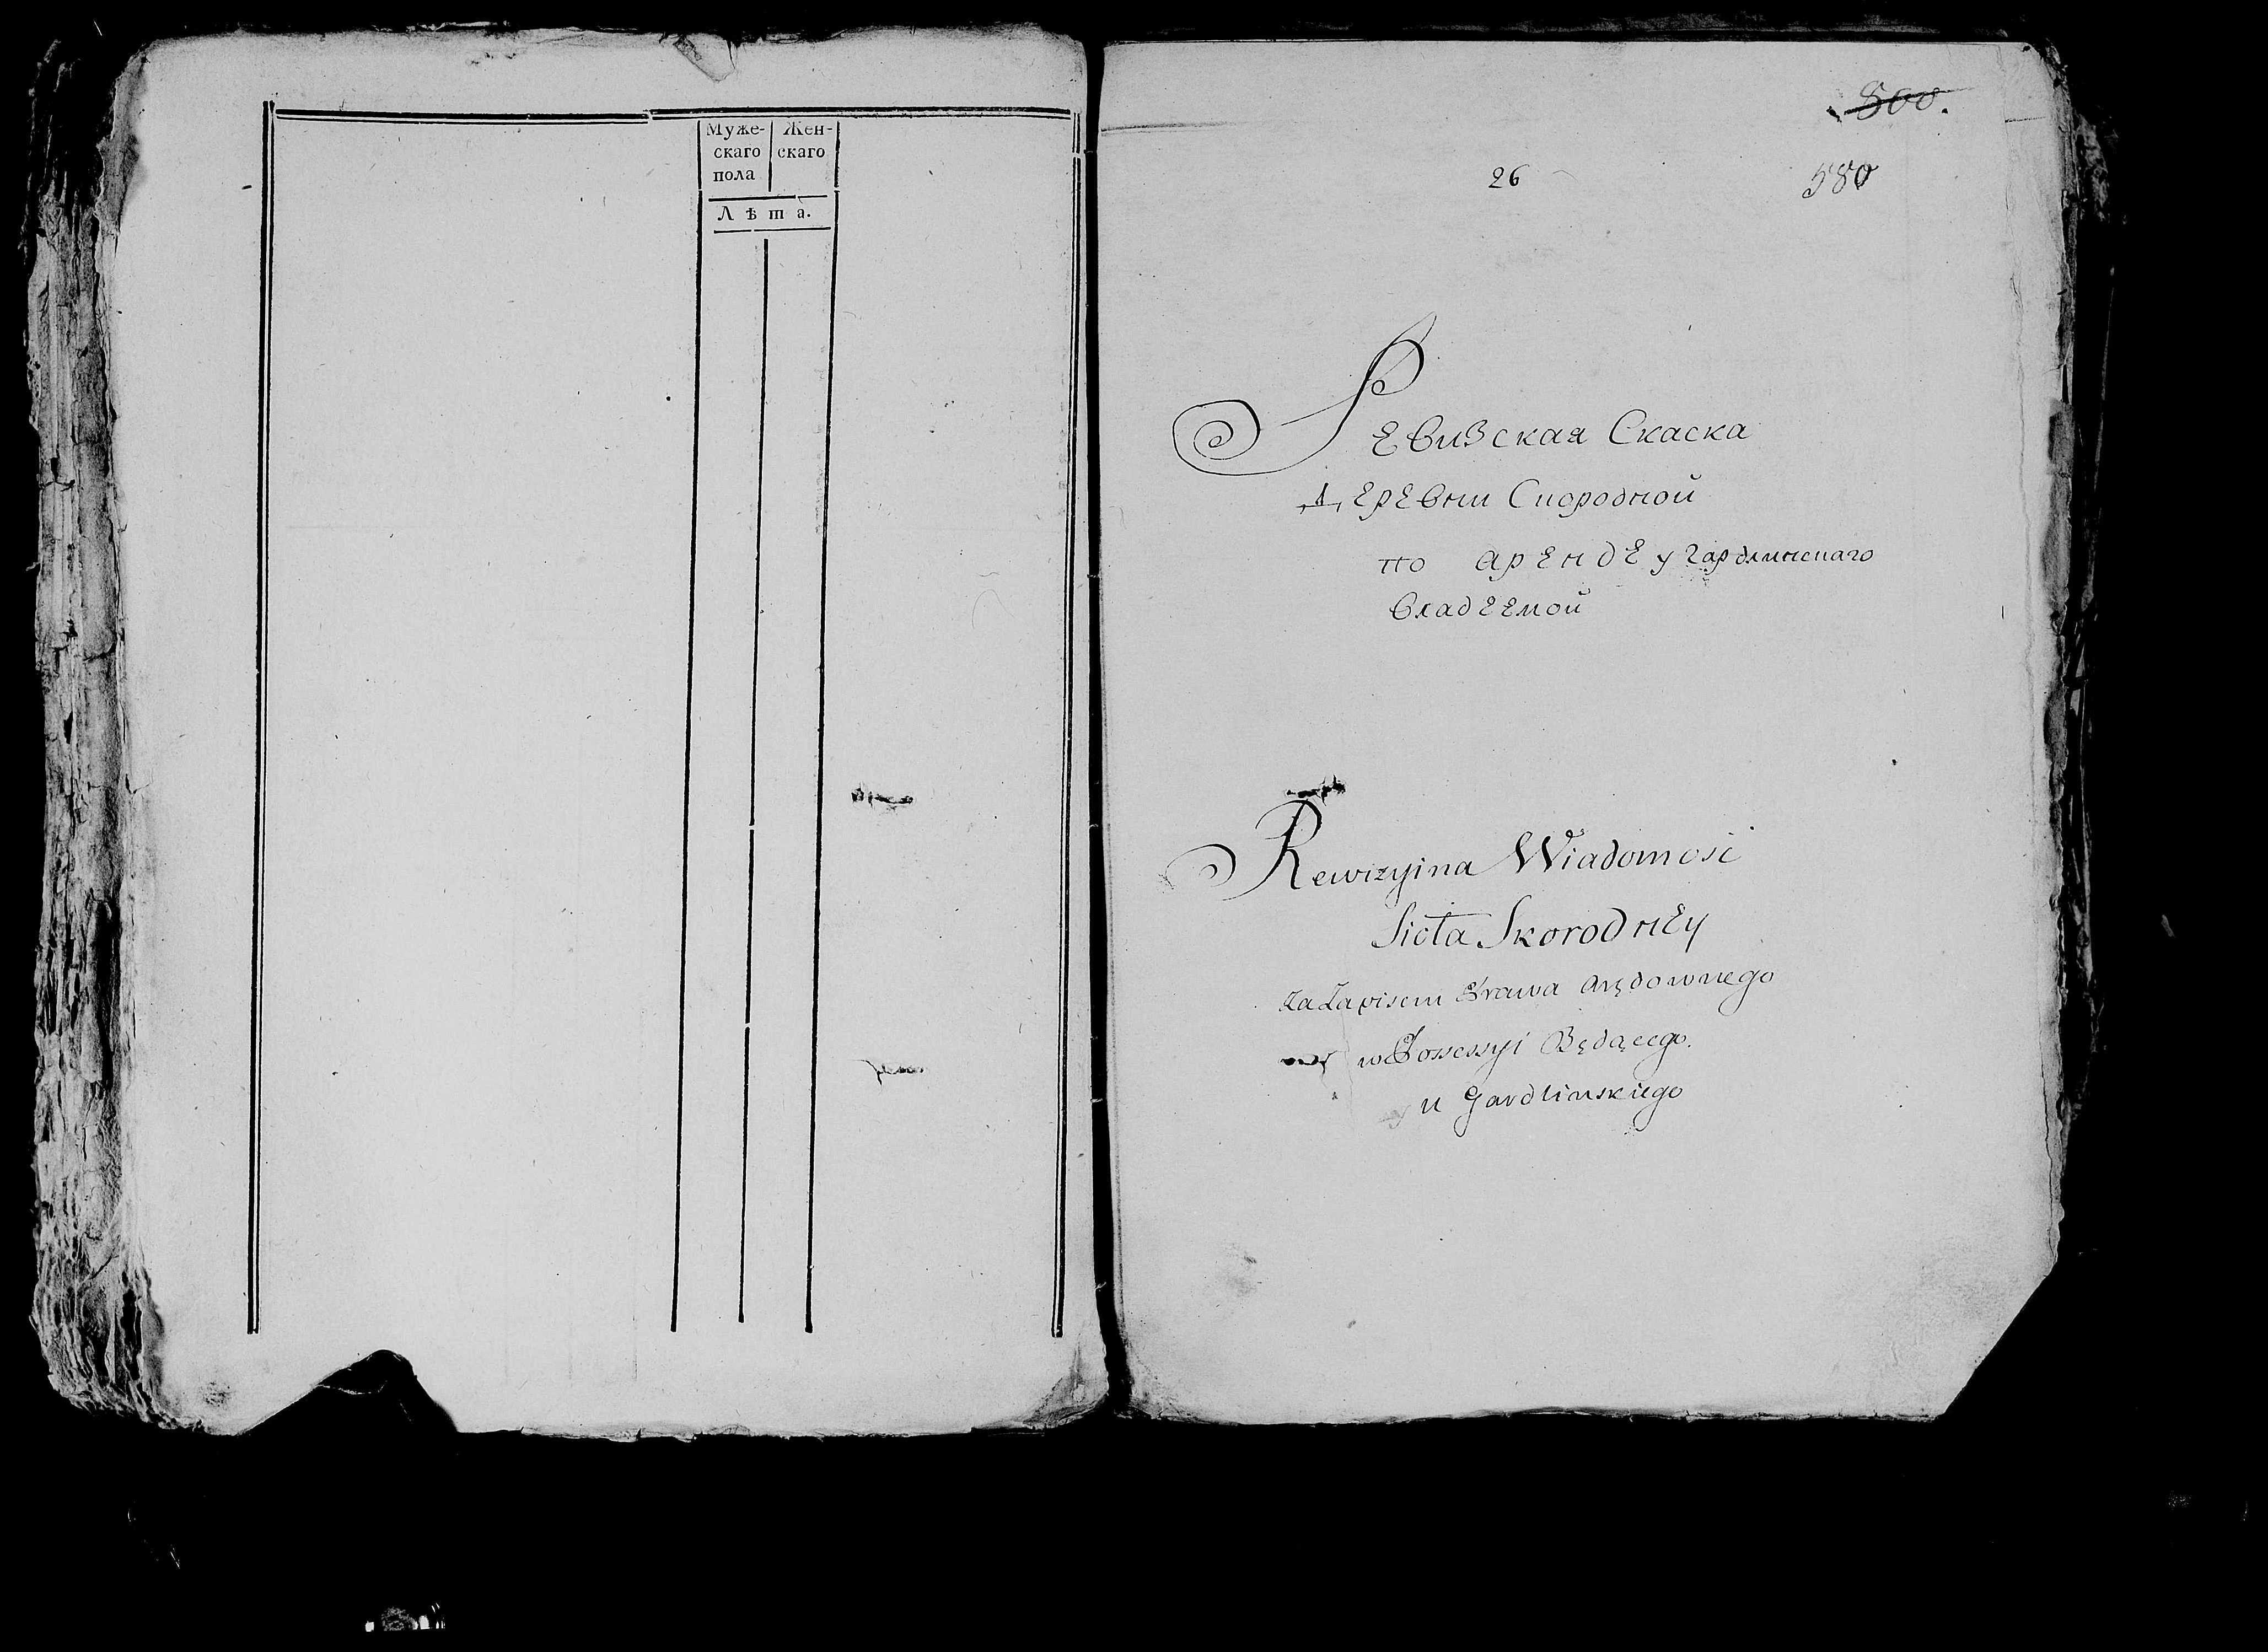 Муже- Жен-
скаго скаго
пола
Лѣта.
500.
26 580
Ревизская Скаска
Деревни Скородной
по аренде у Гардлинскаго
владеемой
Rewizyina Wiadomość
Sioła Skorodney
Za Zapisem Prawa Arędownego
w Possessyi Będącego
u Gardlinskiego